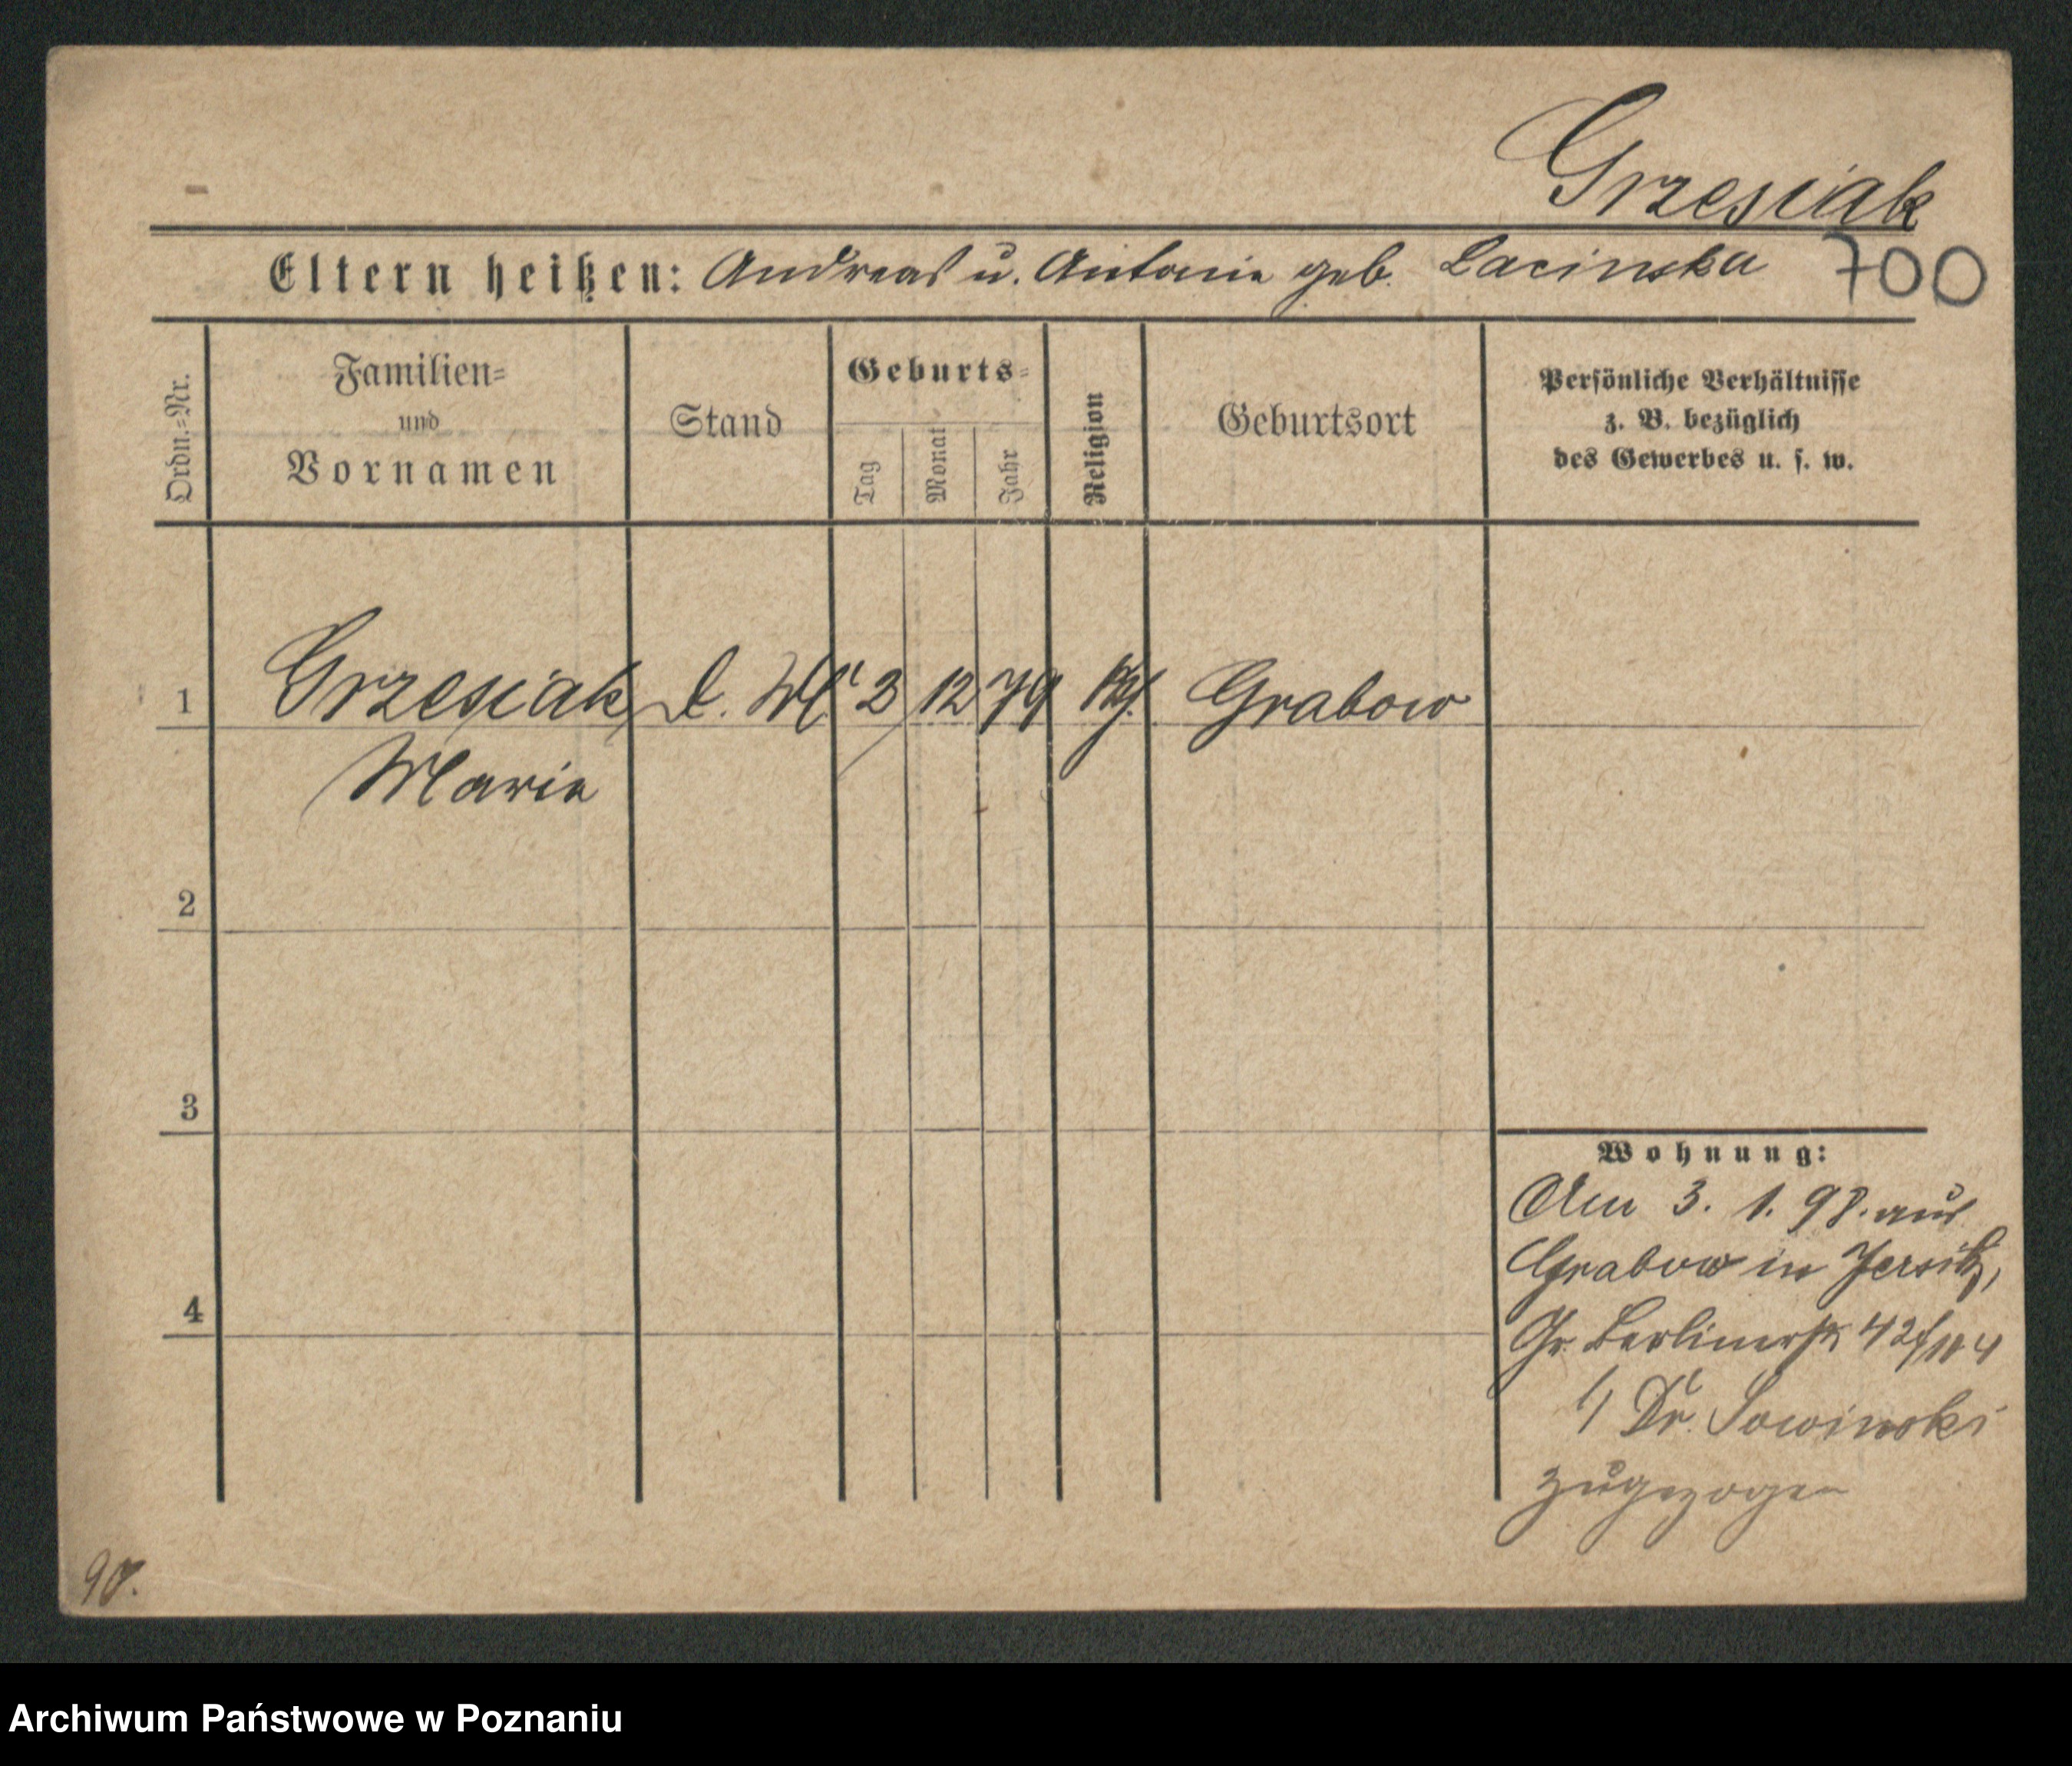 Grzesiak
Eltern heißen: Andreas u. Antonie geb. Lacinska 700
Ordn.=Nr.
Familien=
und
Vornamen
Stand
Geburts=
Tag
Monat
Jahr
Religion
Geburtsort
Persönliche Verhältnisse
z. B. bezüglich
des Gewerbes u. s. w.
1 Grzesiak 3 12 79 Grabow
Marie
2
3
4
Wohnung:
Am 3. 1. 98. aus
Grabow in Jersitz,
Gr. Berlinerstr 42
Dr. Sowinski
zugezogen
Archiwum Państwowe w Poznaniu